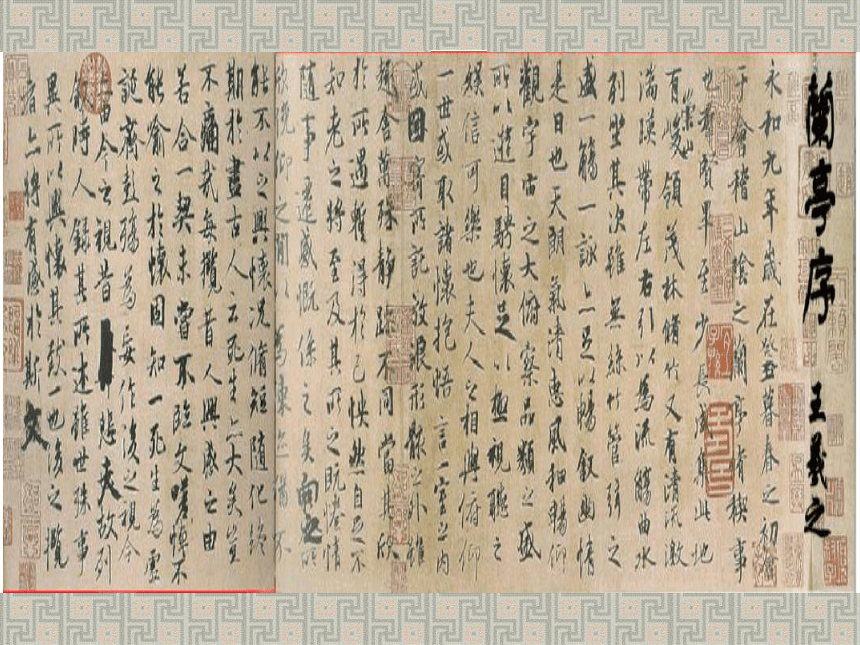 蘭亭序 王羲之
永和九年歲在癸丑暮春之初會
于會稽山陰之蘭亭脩稧事
也群賢畢至少長咸集此地
有崇山峻領茂林脩竹又有清流激
湍暎帶左右引以為流觴曲水
列坐其次雖無絲竹管弦之
盛一觴一詠亦足以暢敘幽情
是日也天朗氣清惠風和暢仰
觀宇宙之大俯察品類之盛
所以遊目騁懷足以極視聽之
娛信可樂也夫人之相與俯仰
一世或取諸懷抱悟言一室之內
或因寄所託放浪形骸之外雖
趣舍萬殊靜躁不同當其欣
於所遇暫得於己怏然自足不
知老之將至及其所之既惓情
隨事遷感慨係之矣向之所
欣俛仰之閒以為陳跡猶不
能不以之興懷況脩短隨化終
期於盡古人云死生亦大矣豈
不痛哉每攬昔人興感之由
若合一契未嘗不臨文嗟悼不
能喻之於懷固知一死生為虛
誕齊彭殤為妄作後之視今
亦由今之視昔悲夫故列
敘時人錄其所述雖世殊事
異所以興懷其致一也後之攬
者亦將有感於斯文